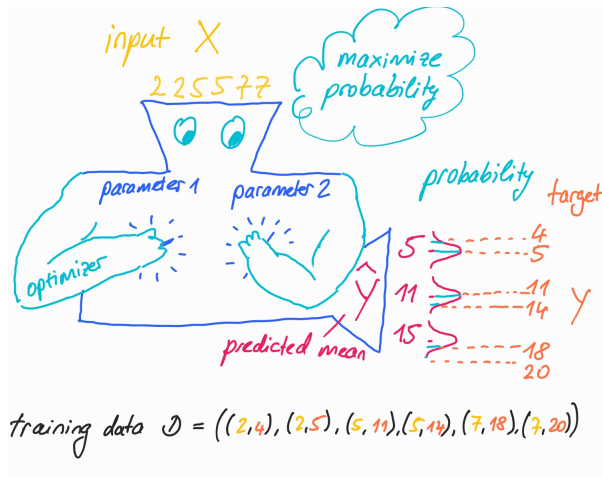 input X
2 2 5 5 7 7
maximize
probability
parameter 1
parameter 2
optimizer
probability
target
5
11
15
4
5
11
14
18
20
Ŷ
Y
predicted mean
training data D = ((2,4), (2,5), (5,11), (5,14), (7,18), (7,20))